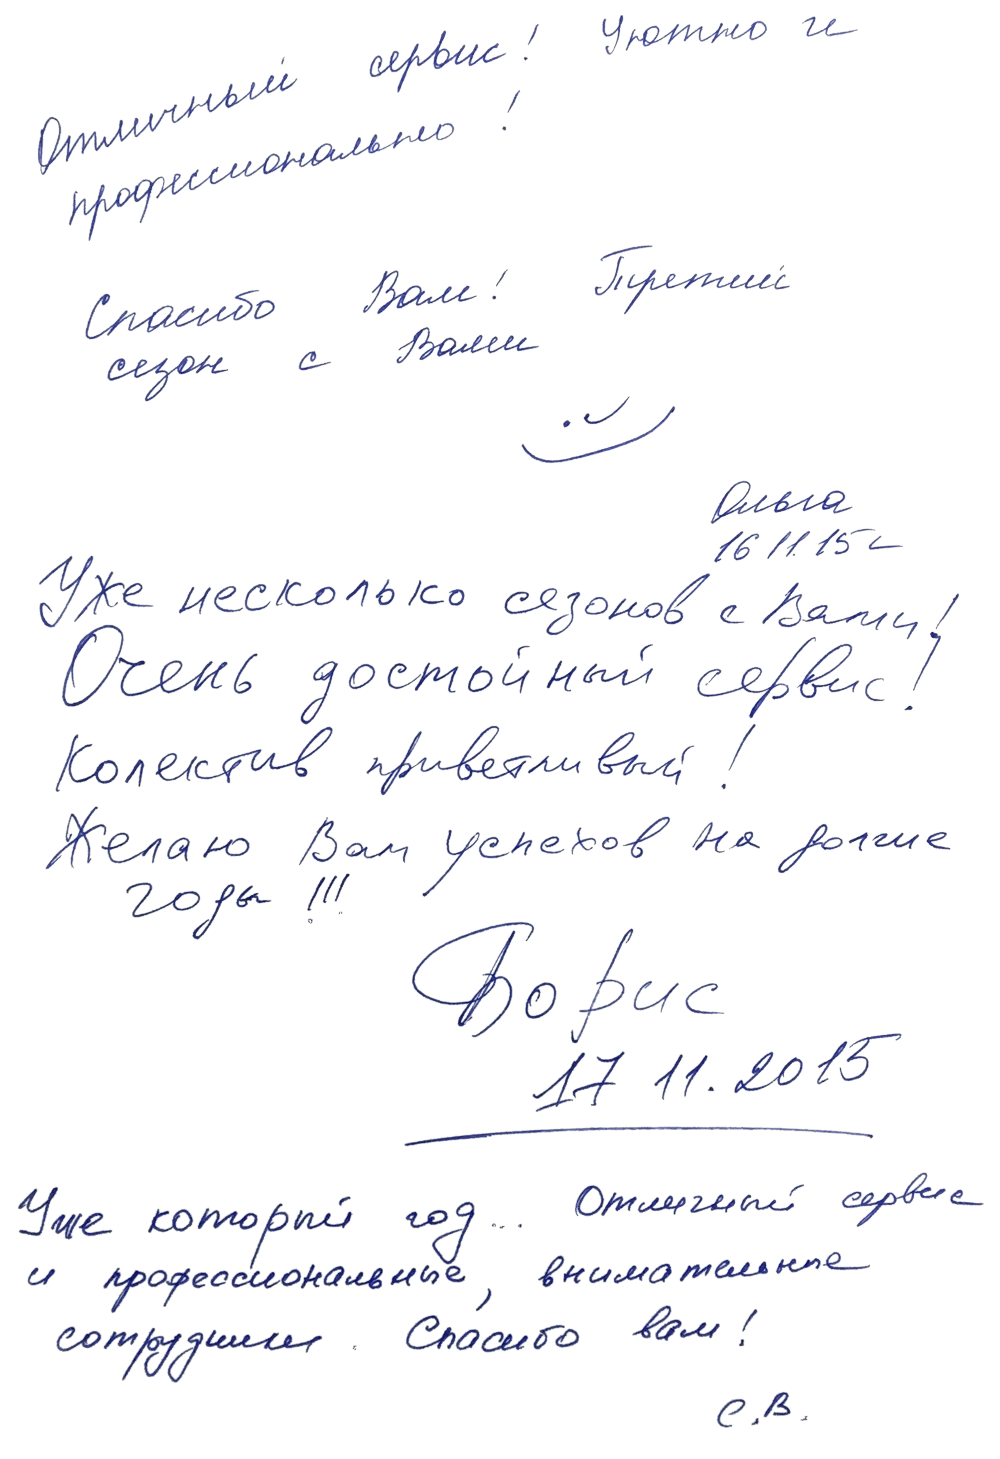 Отличный сервис! Уютно и
профессионально!
Спасибо Вам! Третий
сезон с Вами
Ольга
16 11. 15 г
Уже несколько сезонов с Вами!
Очень достойный сервис!
Колектив приветливый!
Желаю Вам успехов на долгие
годы!!!
Борис
17 11. 2015
Уже который год... Отличный сервис
и профессиональные, внимательные
сотрудники. Спасибо вам!
С.В.